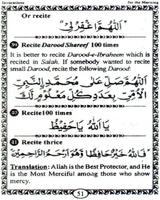 Invocations for the Morning
Or recite
اَللّٰهُمَّ اغْفِرْ لِيْ
Recite Darood Shareef 100 times
It is better to recite Darood-e-Ibraheem which is
recited in Salah. If somebody wanted to recite
small Darood, recite the following Darood:
اَللّٰهُمَّ صَلِّ عَلٰى مُحَمَّدِ النَّبِيِّ
Recite100 times
يَا اَللّٰهُ يَا حَفِيْظُ
Recite thrice
فَاللّٰهُ خَيْرٌ حَافِظًا وَّهُوَ اَرْحَمُ الرَّاحِمِيْنَ
Translation: Allah is the Best Protector, and He
is the Most Merciful among those who show
mercy.
51